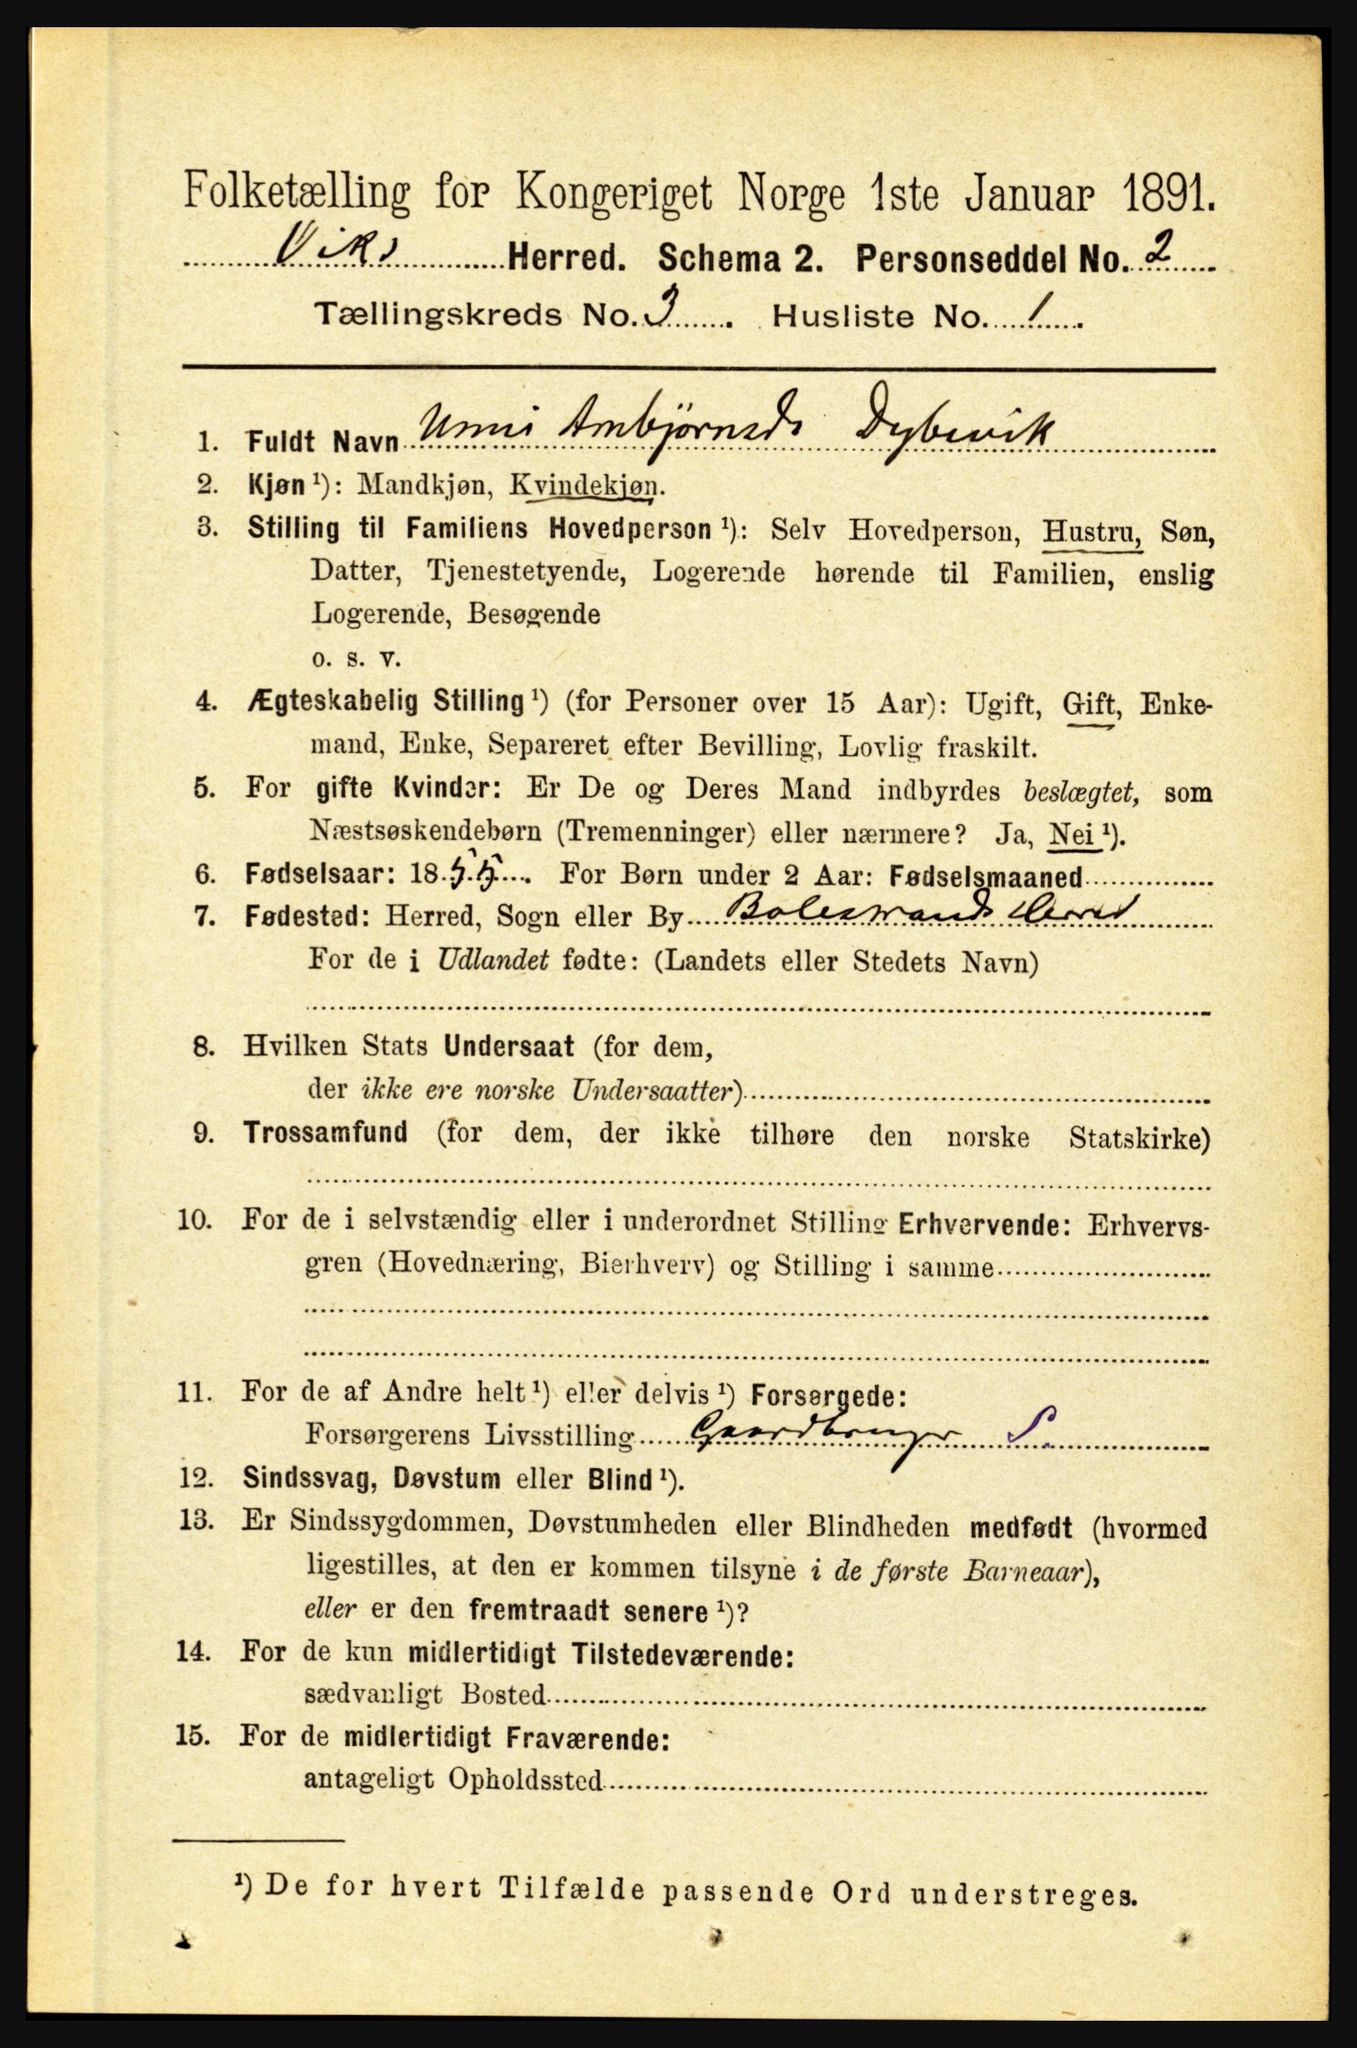 Folketælling for Kongeriget Norge 1ste Januar 1891.
Viks Herred. Schema 2. Personseddel No. 2
Tællingskreds No. 3. Husliste No. 1.
1. Fuldt Navn Unni Ambjørnsd. Dybevik
2. Kjøn ¹): Mandkjøn, Kvindekjøn.
3. Stilling til Familiens Hovedperson ¹): Selv Hovedperson, Hustru, Søn,
Datter, Tjenestetyende, Logerende hørende til Familien, enslig
Logerende, Besøgende
o. s. v.
4. Ægteskabelig Stilling ¹) (for Personer over 15 Aar): Ugift, Gift, Enke-
mand, Enke, Separeret efter Bevilling, Lovlig fraskilt.
5. For gifte Kvinder: Er De og Deres Mand indbyrdes beslægtet, som
Næstsøskendebørn (Tremenninger) eller nærmere? Ja, Nei ¹).
6. Fødselsaar: 1855. For Børn under 2 Aar: Fødselsmaaned
7. Fødested: Herred, Sogn eller By Balestrands Herred
For de i Udlandet fødte: (Landets eller Stedets Navn)
8. Hvilken Stats Undersaat (for dem,
der ikke ere norske Undersaatter)
9. Trossamfund (for dem, der ikke tilhøre den norske Statskirke)
10. For de i selvstændig eller i underordnet Stilling Erhvervende: Erhvervs-
gren (Hovednæring, Bierhverv) og Stilling i samme
11. For de af Andre helt ¹) eller delvis ¹) Forsørgede:
Forsørgerens Livsstilling Gaardbruger S.
12. Sindssvag, Døvstum eller Blind ¹).
13. Er Sindssygdommen, Døvstumheden eller Blindheden medfødt (hvormed
ligestilles, at den er kommen tilsyne i de første Barneaar),
eller er den fremtraadt senere ¹)?
14. For de kun midlertidigt Tilstedeværende:
sædvanligt Bosted
15. For de midlertidigt Fraværende:
antageligt Opholdssted
¹) De for hvert Tilfælde passende Ord understreges.